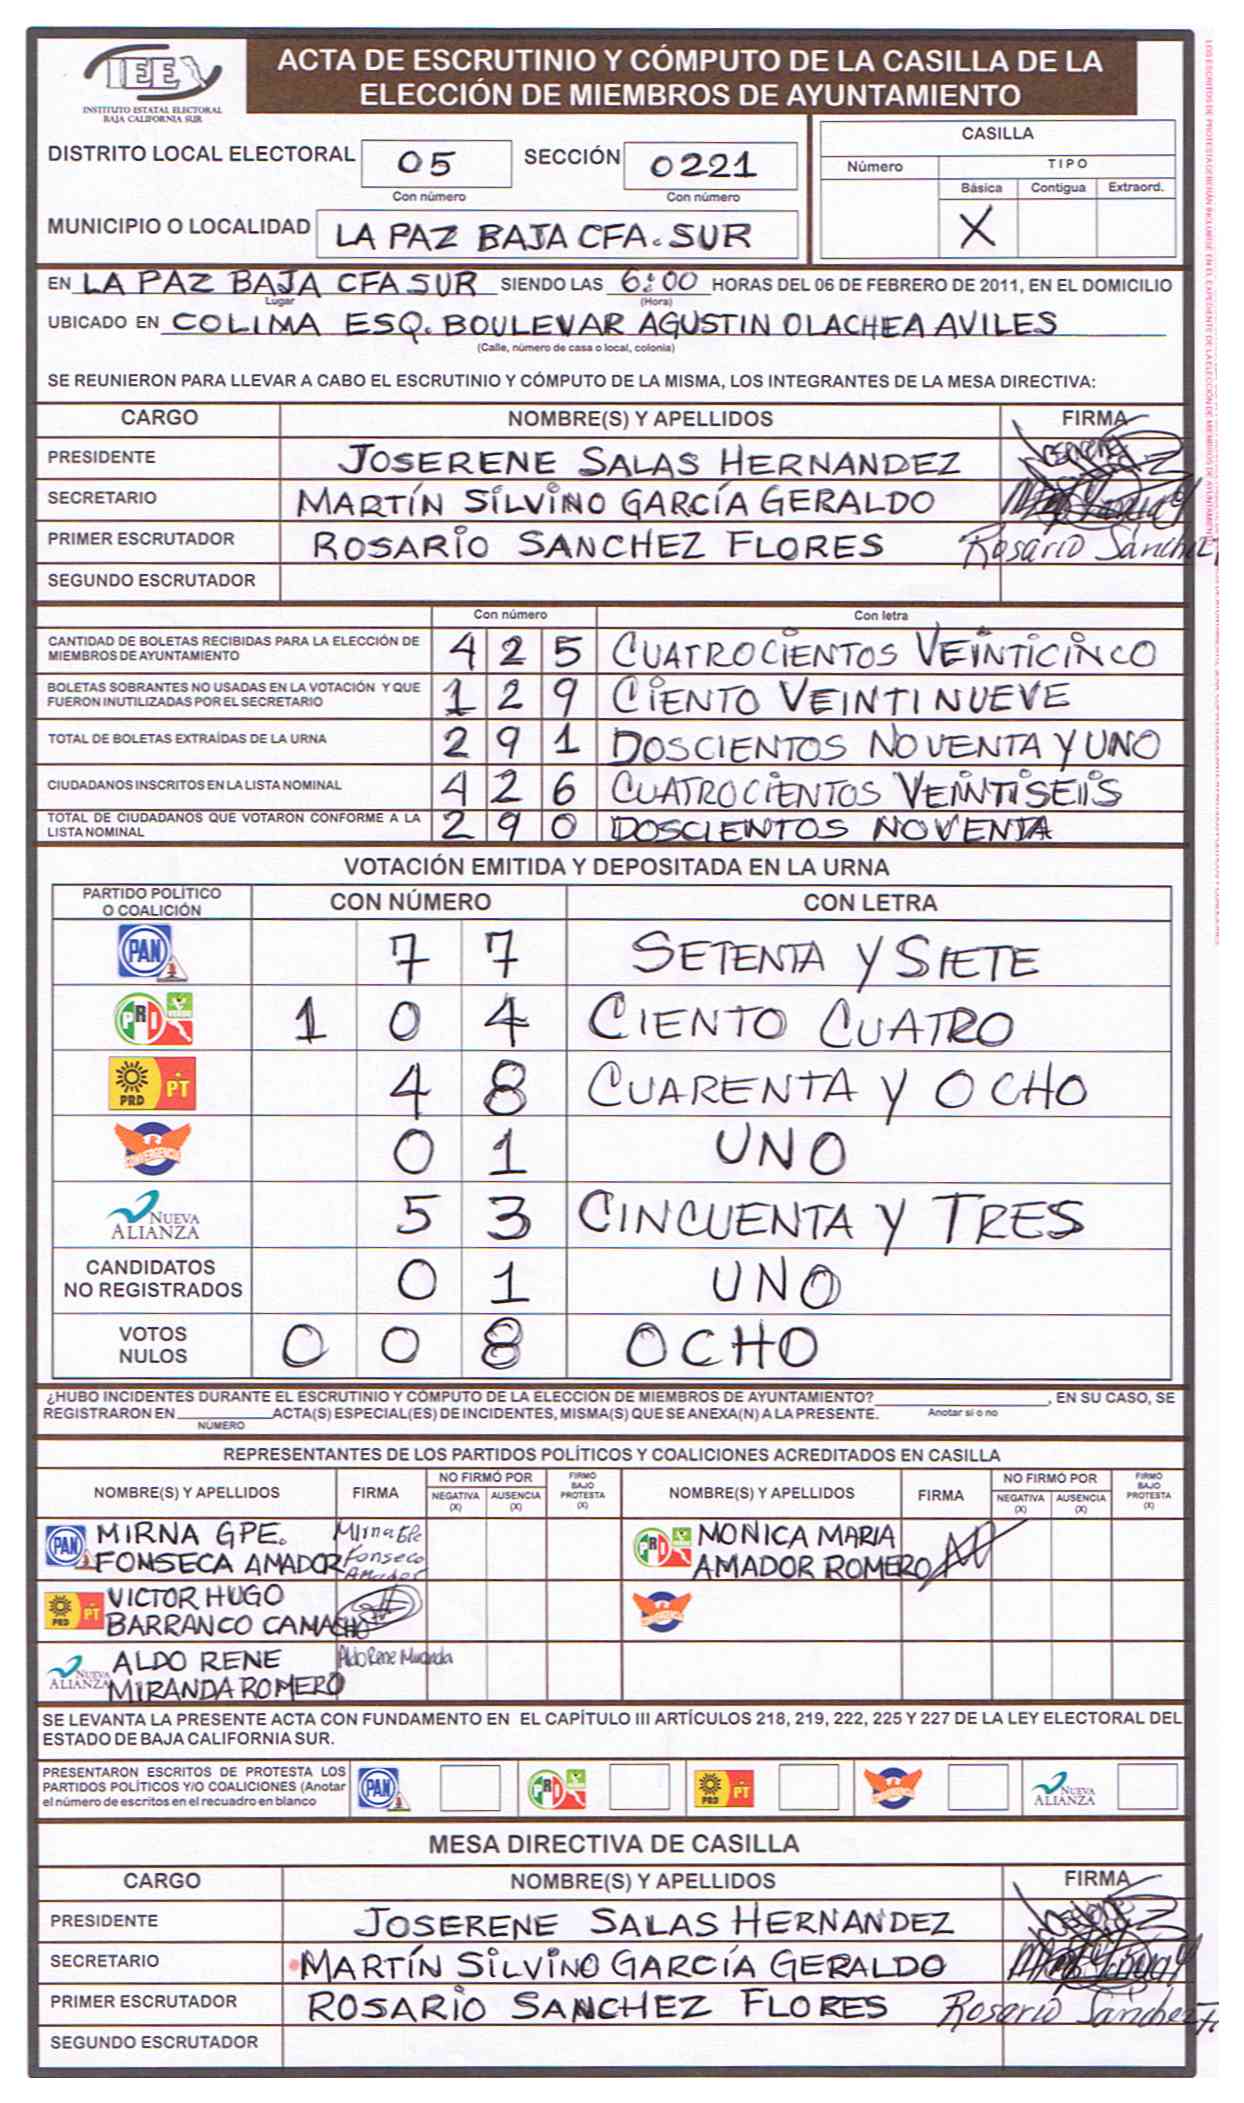 IEE
INSTITUTO ESTATAL ELECTORAL
BAJA CALIFORNIA SUR
ACTA DE ESCRUTINIO Y CÓMPUTO DE LA CASILLA DE LA
ELECCIÓN DE MIEMBROS DE AYUNTAMIENTO
DISTRITO LOCAL ELECTORAL 05 SECCIÓN 0221
Con número Con número
MUNICIPIO O LOCALIDAD LA PAZ BAJA CFA. SUR
CASILLA
Número TIPO
Básica Contigua Extraord.
X
EN LA PAZ BAJA CFA SUR SIENDO LAS 6:00 HORAS DEL 06 DE FEBRERO DE 2011, EN EL DOMICILIO
Lugar (Hora)
UBICADO EN COLIMA ESQ. BOULEVAR AGUSTIN OLACHEA AVILES
(Calle, número de casa o local, colonia)
SE REUNIERON PARA LLEVAR A CABO EL ESCRUTINIO Y CÓMPUTO DE LA MISMA, LOS INTEGRANTES DE LA MESA DIRECTIVA:
CARGO NOMBRE(S) Y APELLIDOS FIRMA
PRESIDENTE JOSERENE SALAS HERNANDEZ
SECRETARIO MARTÍN SILVINO GARCÍA GERALDO
PRIMER ESCRUTADOR ROSARIO SANCHEZ FLORES Rosario Sánchez
SEGUNDO ESCRUTADOR
Con número Con letra
CANTIDAD DE BOLETAS RECIBIDAS PARA LA ELECCIÓN DE
MIEMBROS DE AYUNTAMIENTO 4 2 5 CUATROCIENTOS VEINTICINCO
BOLETAS SOBRANTES NO USADAS EN LA VOTACIÓN Y QUE
FUERON INUTILIZADAS POR EL SECRETARIO 1 2 9 CIENTO VEINTINUEVE
TOTAL DE BOLETAS EXTRAÍDAS DE LA URNA 2 9 1 DOSCIENTOS NOVENTA Y UNO
CIUDADANOS INSCRITOS EN LA LISTA NOMINAL 4 2 6 CUATROCIENTOS VEINTISEIIS
TOTAL DE CIUDADANOS QUE VOTARON CONFORME A LA
LISTA NOMINAL 2 9 0 DOSCIENTOS NOVENTA
VOTACIÓN EMITIDA Y DEPOSITADA EN LA URNA
PARTIDO POLÍTICO
O COALICIÓN CON NÚMERO CON LETRA
PAN 7 7 SETENTA Y SIETE
PRD 1 0 4 CIENTO CUATRO
PRD PT 4 8 CUARENTA Y OCHO
CONVERGENCIA 0 1 UNO
NUEVA
ALIANZA 5 3 CINCUENTA Y TRES
CANDIDATOS
NO REGISTRADOS 0 1 UNO
VOTOS
NULOS 0 0 8 OCHO
¿HUBO INCIDENTES DURANTE EL ESCRUTINIO Y CÓMPUTO DE LA ELECCIÓN DE MIEMBROS DE AYUNTAMIENTO? , EN SU CASO, SE
REGISTRARON EN ACTA(S) ESPECIAL(ES) DE INCIDENTES, MISMA(S) QUE SE ANEXA(N) A LA PRESENTE. Anotar si o no
NÚMERO
REPRESENTANTES DE LOS PARTIDOS POLÍTICOS Y COALICIONES ACREDITADOS EN CASILLA
NOMBRE(S) Y APELLIDOS FIRMA NO FIRMÓ POR NEGATIVA (X) AUSENCIA (X) FIRMÓ BAJO PROTESTA (X) NOMBRE(S) Y APELLIDOS FIRMA NO FIRMÓ POR NEGATIVA (X) AUSENCIA (X) FIRMÓ BAJO PROTESTA (X)
PAN MIRNA GPE. Mirna Gpe PRD MONICA MARIA
FONSECA AMADOR Fonseca Amador AMADOR ROMERO
PRD PT VICTOR HUGO CONVERGENCIA
BARRANCO CAMACHO
NUEVA ALIANZA ALDO RENE Aldo Rene Miranda
MIRANDA ROMERO
SE LEVANTA LA PRESENTE ACTA CON FUNDAMENTO EN EL CAPÍTULO III ARTÍCULOS 218, 219, 222, 225 Y 227 DE LA LEY ELECTORAL DEL
ESTADO DE BAJA CALIFORNIA SUR.
PRESENTARON ESCRITOS DE PROTESTA LOS
PARTIDOS POLÍTICOS Y/O COALICIONES (Anotar
el número de escritos en el recuadro en blanco
PAN PRD PRD PT CONVERGENCIA NUEVA ALIANZA
MESA DIRECTIVA DE CASILLA
CARGO NOMBRE(S) Y APELLIDOS FIRMA
PRESIDENTE JOSERENE SALAS HERNANDEZ
SECRETARIO MARTÍN SILVINO GARCÍA GERALDO
PRIMER ESCRUTADOR ROSARIO SANCHEZ FLORES Rosario Sanchez F.
SEGUNDO ESCRUTADOR